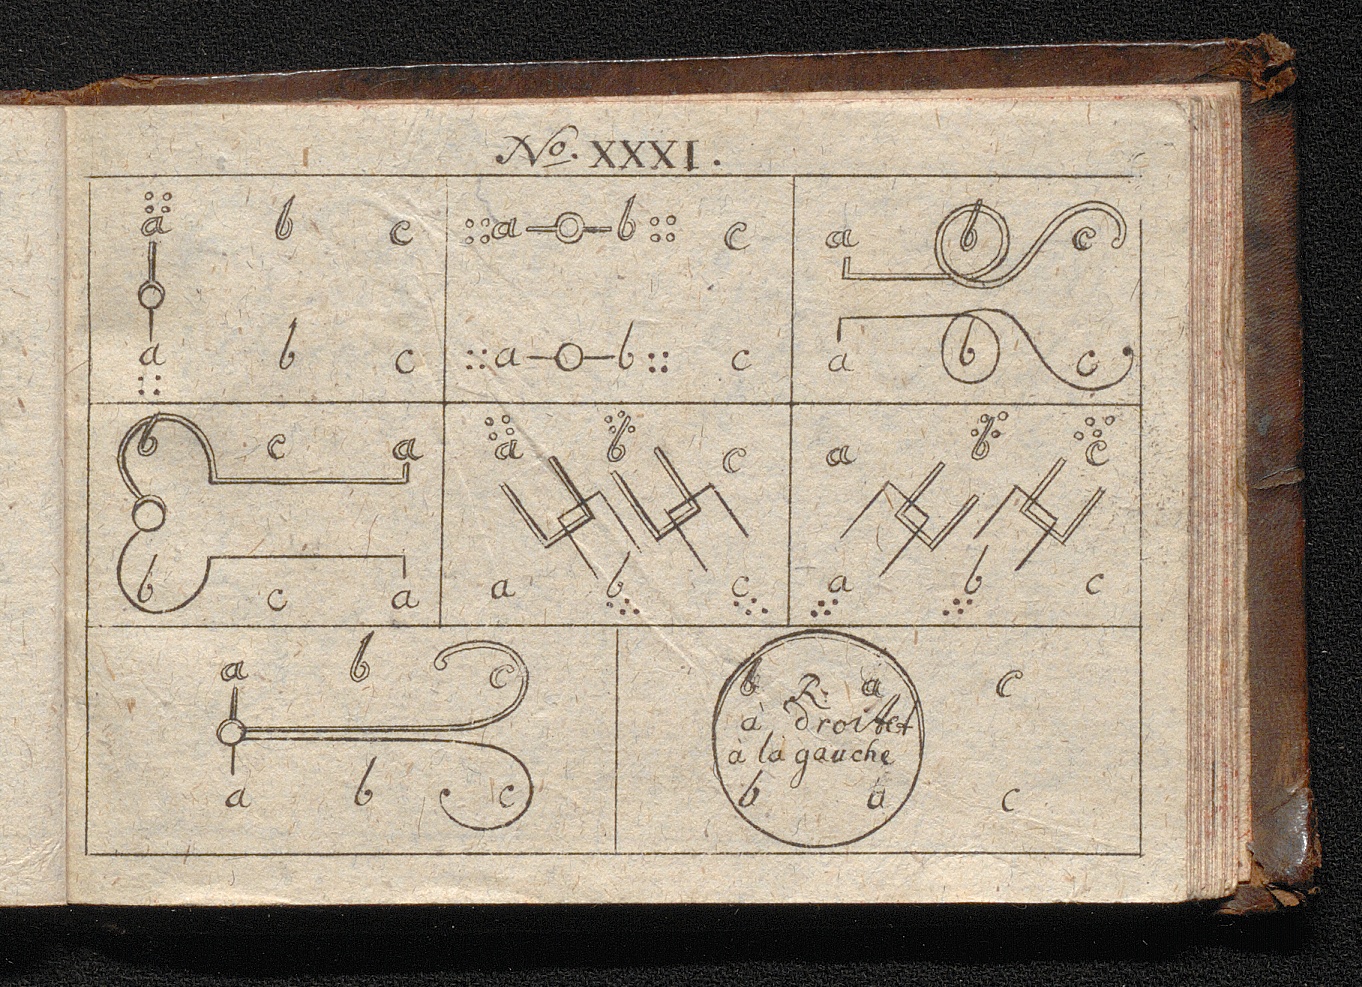 No. XXXI.
a b c
a b c
a b c
a b c
a b c
a b c
b c a
b c a
a b c
a b c
a b c
a b c
a b c
a b c
b R: a c
à droitte et
à la gauche
b a c